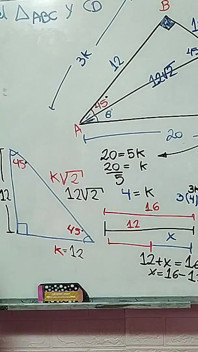 △ABC y
B
3K
12
12√2
45°
8°
A
20
20=5K
20 = K
5
4 = K
45°
K√2
12√2
12
45°
K=12
16
12
x
12+x = 16
x=16-1